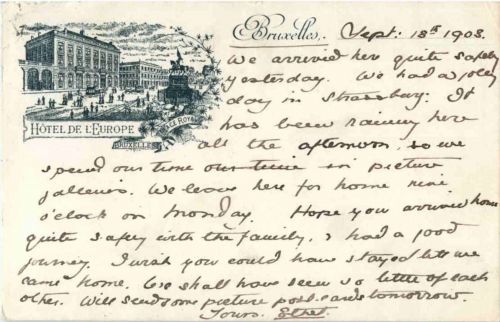 Bruxelles, Sept: 13th 1903.
We arrived here quite safely
yesterday. We had a jolly
day in Strassburg. It
has been rainy here
all the afternoon, so we
HÔTEL DE L'EUROPE
PLACE ROYALE
BRUXELLES
spend our time our time in picture
galleries. We leave here for home nine
o'clock on Monday. Hope you arrived home
quite safely with the family, & had a good
journey. I wish you could have stayed till we
came home. We shall have seen so little of each
other. Will send some picture post-cards tomorrow.
Yours. Ethel.